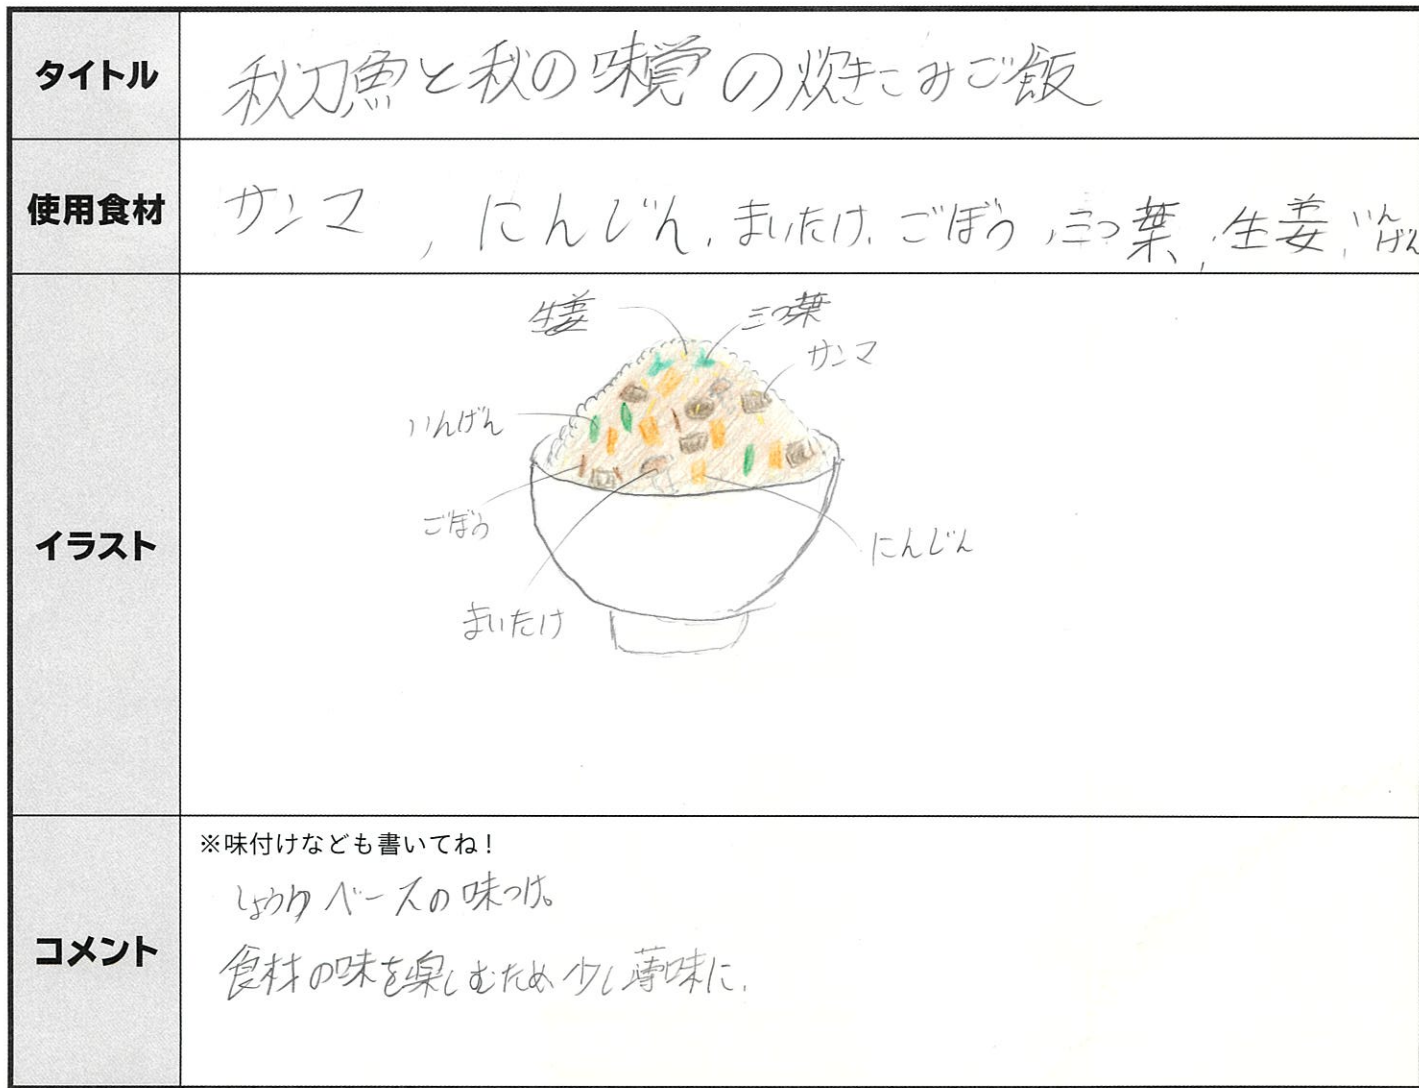 タイトル
秋刀魚と秋の味覚の炊きこみご飯
使用食材
サンマ, にんじん, まいたけ, ごぼう, 三つ葉, 生姜, いんげん
イラスト
生姜
三つ葉
サンマ
いんげん
ごぼう
にんじん
まいたけ
コメント
※味付けなども書いてね!
しょうゆベースの味つけ。
食材の味を楽しむため少し薄味に.